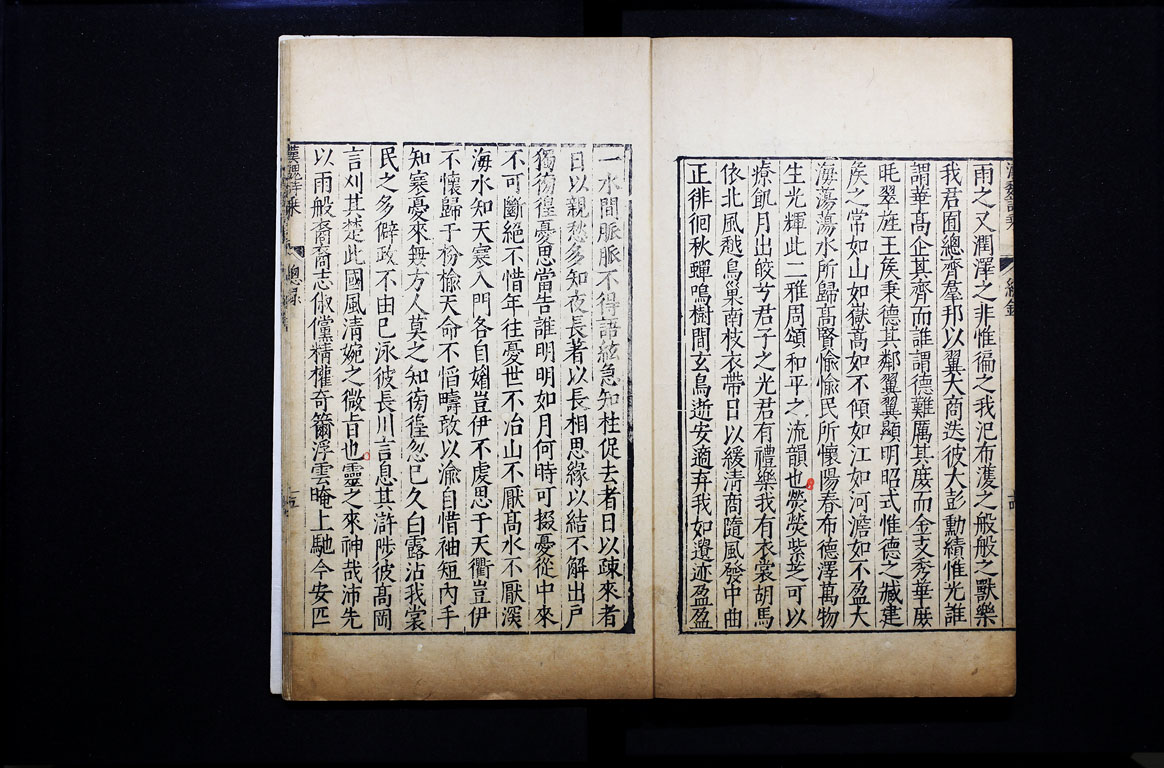 漢魏詩乘
總錄
雨之又潤澤之非惟徧之我氾布濩之般般之獸樂
我君囿總齊羣邦以翼大商迭彼大彭勳績惟光誰
謂華高企其齊而誰謂德難厲其庶而金支秀華庶
旄翠旌王侯秉德其鄰翼翼顯明昭式惟德之臧建
侯之常如山如嶽嵩如不傾如江如河澹如不盈大
海蕩蕩水所歸高賢愉愉民所懷陽春布德澤萬物
生光輝此二雅周頌和平之流韻也熒熒紫芝可以
療飢月出皎兮君子之光君有禮樂我有衣裳胡馬
依北風越鳥巢南枝衣帶日以緩清商隨風發中曲
正徘徊秋蟬鳴樹間玄鳥逝安適弃我如遺迹盈盈
一水間脈脈不得語絃急知柱促去者日以疎來者
日以親愁多知夜長著以長相思緣以結不解出戶
獨徬徨憂思當告誰明明如月何時可掇憂從中來
不可斷絕不惜年往憂世不治山不厭高水不厭深
海水知天寒入門各自媚豈伊不虔思于天衢豈伊
不懷歸于枌榆天命不慆疇敢以渝自惜袖短內手
知寒憂來無方人莫之知徬徨忽已久白露沾我裳
民之多僻政不由己泳彼長川言息其滸陟彼高岡
言刈其楚此國風清婉之微旨也靈之來神哉沛先
以雨般裔裔志俶儻精權奇籋浮雲晻上馳今安匹
漢魏詩乘
總錄